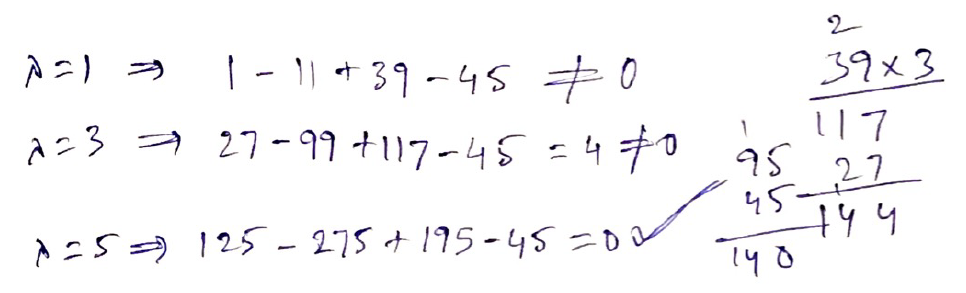 λ=1 ⇒ 1 - 11 + 39 - 45 ≠ 0
λ=3 ⇒ 27 - 99 + 117 - 45 = 4 ≠ 0
λ=5 ⇒ 125 - 275 + 195 - 45 = 0 ✓
2
39×3
117
27
144
1
95
45
140